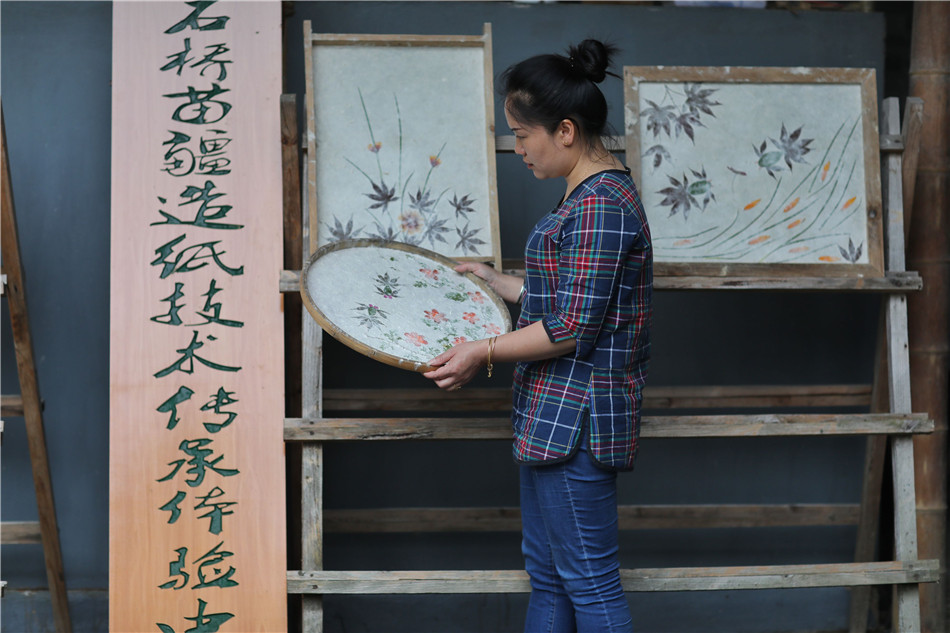 石桥苗疆造纸技术传承体验